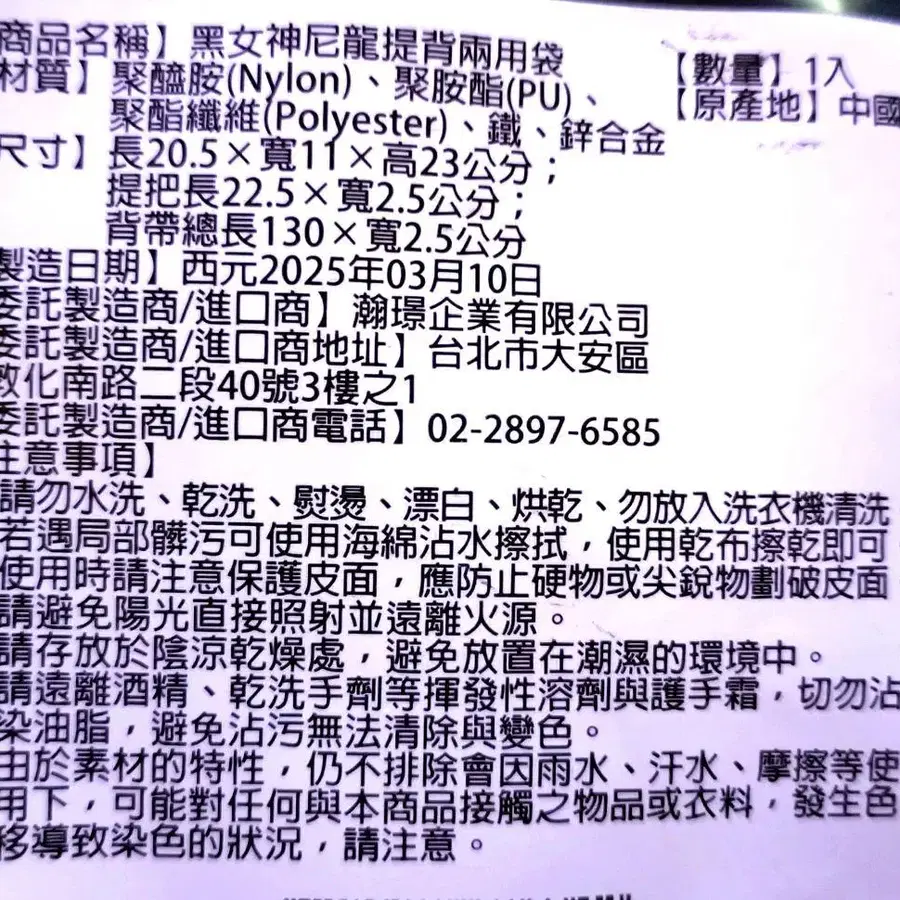 商品名稱】黑女神尼龍提背兩用袋
【數量】1入
材質】聚醯胺(Nylon)、聚胺酯(PU)、
【原產地】中國
聚酯纖維(Polyester)、鐵、鋅合金
尺寸】長20.5×寬11×高23公分；
提把長22.5×寬2.5公分；
背帶總長130×寬2.5公分
製造日期】西元2025年03月10日
委託製造商/進口商】瀚璟企業有限公司
委託製造商/進口商地址】台北市大安區
敦化南路二段40號3樓之1
委託製造商/進口商電話】02-2897-6585
注意事項】
請勿水洗、乾洗、熨燙、漂白、烘乾、勿放入洗衣機清洗
若遇局部髒污可使用海綿沾水擦拭，使用乾布擦乾即可
使用時請注意保護皮面，應防止硬物或尖銳物劃破皮面
請避免陽光直接照射並遠離火源。
請存放於陰涼乾燥處，避免放置在潮濕的環境中。
請遠離酒精、乾洗手劑等揮發性溶劑與護手霜，切勿沾
染油脂，避免沾污無法清除與變色。
由於素材的特性，仍不排除會因雨水、汗水、摩擦等使
用下，可能對任何與本商品接觸之物品或衣料，發生色
移導致染色的狀況，請注意。